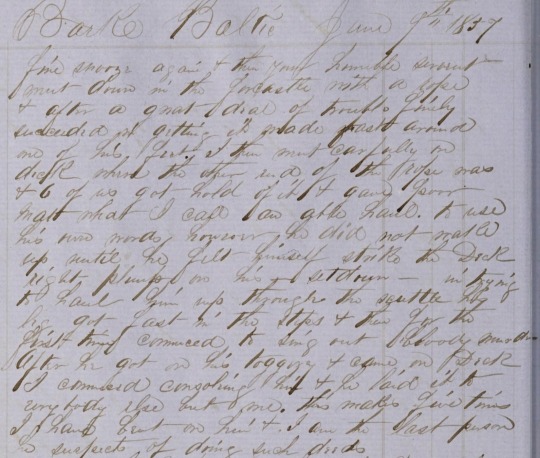 Bark Baltic June 9th 1857
fine snooze again & then your humble servent
went down in the forcastle with a rope
& after a great dial of trouble finly
suceeded in gitting it made fast around
one of his feet I then went carfully on
dick where the other end of the Rope was
& 6 of us got hold of it & gave poor
Matt what I call an able haul. to use
his own words however he did not wake
up until he felt himself strike the Deck
right plump on his setdown in trying
to haul him up through the scuttle his
leg got fast in the steps & then for the
first time commenced to sing out Bloody murder
After he got on his toggery & came on Deck
I commenced consoling him & he laid it to
everybody else but me. this makes five times
I have bent on him & I am the last person
he suspects of doing such deeds